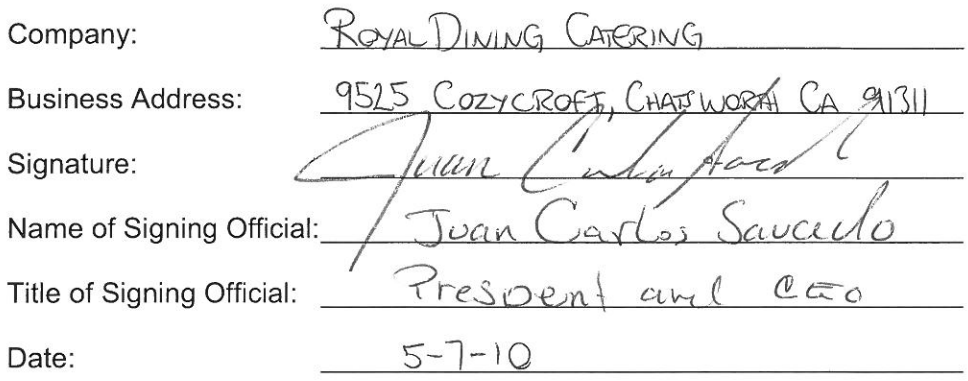 Company: ROYAL DINING CATERING
Business Address: 9525 COZYCROFT, CHATSWORTH CA 91311
Signature: Juan
Name of Signing Official: Juan Carlos Saucedo
Title of Signing Official: Presdent and CEO
Date: 5-7-10